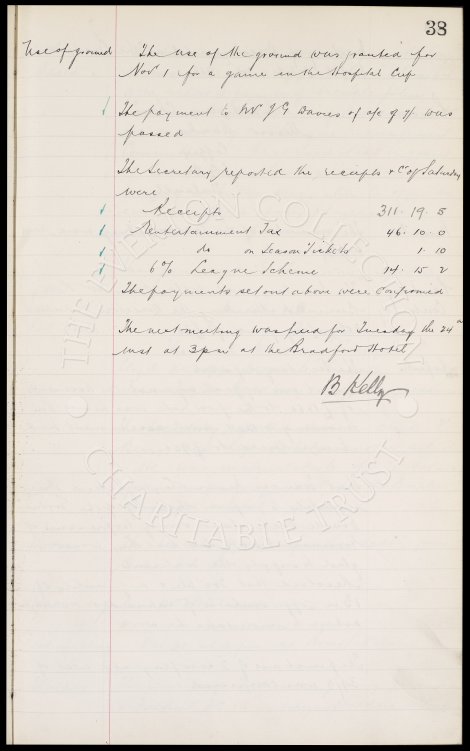 38
Use of ground The use of the ground was granted for
Nov 1 for a game in the Hospital Cup
The payment to Mr J G Davies of a/c of 7/ was
passed
The Secretary reported the receipts & c of Saturday
were
Receipts 311. 19. 5
Entertainment Tax 46. 10. 0
do on Season Tickets 1. 10
6% League Scheme 14. 15 2
The payments set out above were confirmed
The next meeting was fixed for Tuesday the 24th
inst at 3pm at the Bradford Hotel
B Kelly
THE EVERTON COLLECTION
CHARITABLE TRUST